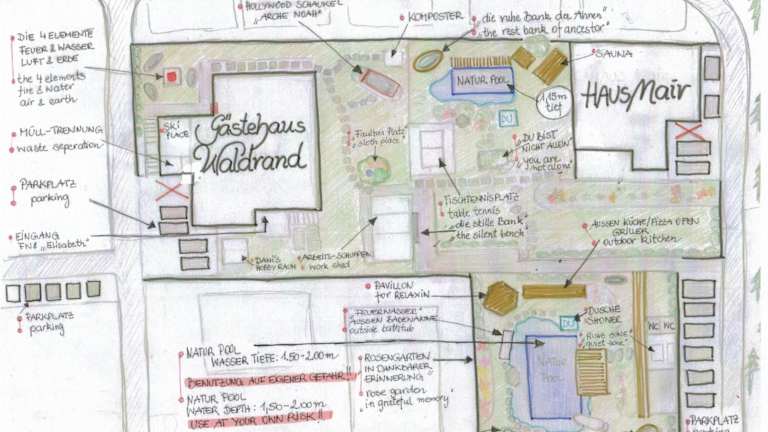 HOLLYWOOD SCHAUKEL
"ARCHE NOAH"
KOMPOSTER
die ruhe Bank der Ahnen
"the rest bank of ancestor"
DIE 4 ELEMENTE
FEUER & WASSER
LUFT & ERDE
the 4 elements
fire & water
air & earth
SAUNA
NATUR POOL
1,15m
tief
HAUS Mair
SKI
PLACE
Gästehaus
Waldrand
DU
MÜLL-TRENNUNG
waste seperation
"Fauler Platz"
"sloth place"
DU BIST
NICHT ALLEIN
"you are
not alone"
PARKPLATZ
parking
TISCHTENNISPLATZ
table tennis
die stille Bank
"the silent bench"
AUSSEN KÜCHE/PIZZA OFEN
GRILLER
outdoor kitchen
EINGANG
FNS "Elisabeth"
DANIS
HOBBYRAUM
ARBEITS-SCHUPPEN
work shed
PAVILLON
for RELAXIN
PARKPLATZ
parking
"FEUERWASSER"
AUSSEN BADEWANNE
outside bathtub
DU
DUSCHE
SHOWER
"RUHE ZONE"
"quiet zone"
WC WC
NATUR POOL
WASSER TIEFE: 1,50-2,00m
BENUTZUNG AUF EIGENER GEFAHR!!
NATUR POOL
WATER DEPTH: 1,50-2,00m
USE AT YOUR OWN RISK!!
ROSENGARTEN
IN DANKBARER
ERINNERUNG
"rose garden
in grateful memory"
NATUR
POOL
PARKPLATZ
parking